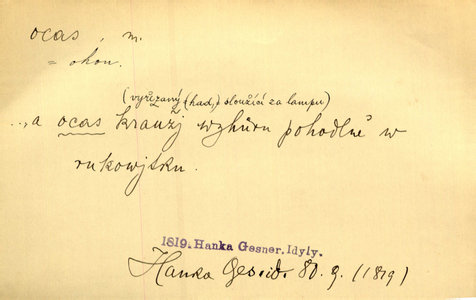 ocas, m.
= ohon.
(vyřezavý (had,) sloužící za lampu)
..., a ocas kraužj wzhůru pohodlně w
rukowjtku.
1819. Hanka Gesner. Idyly.
Hanka Gesid. 80. 9. (1819)